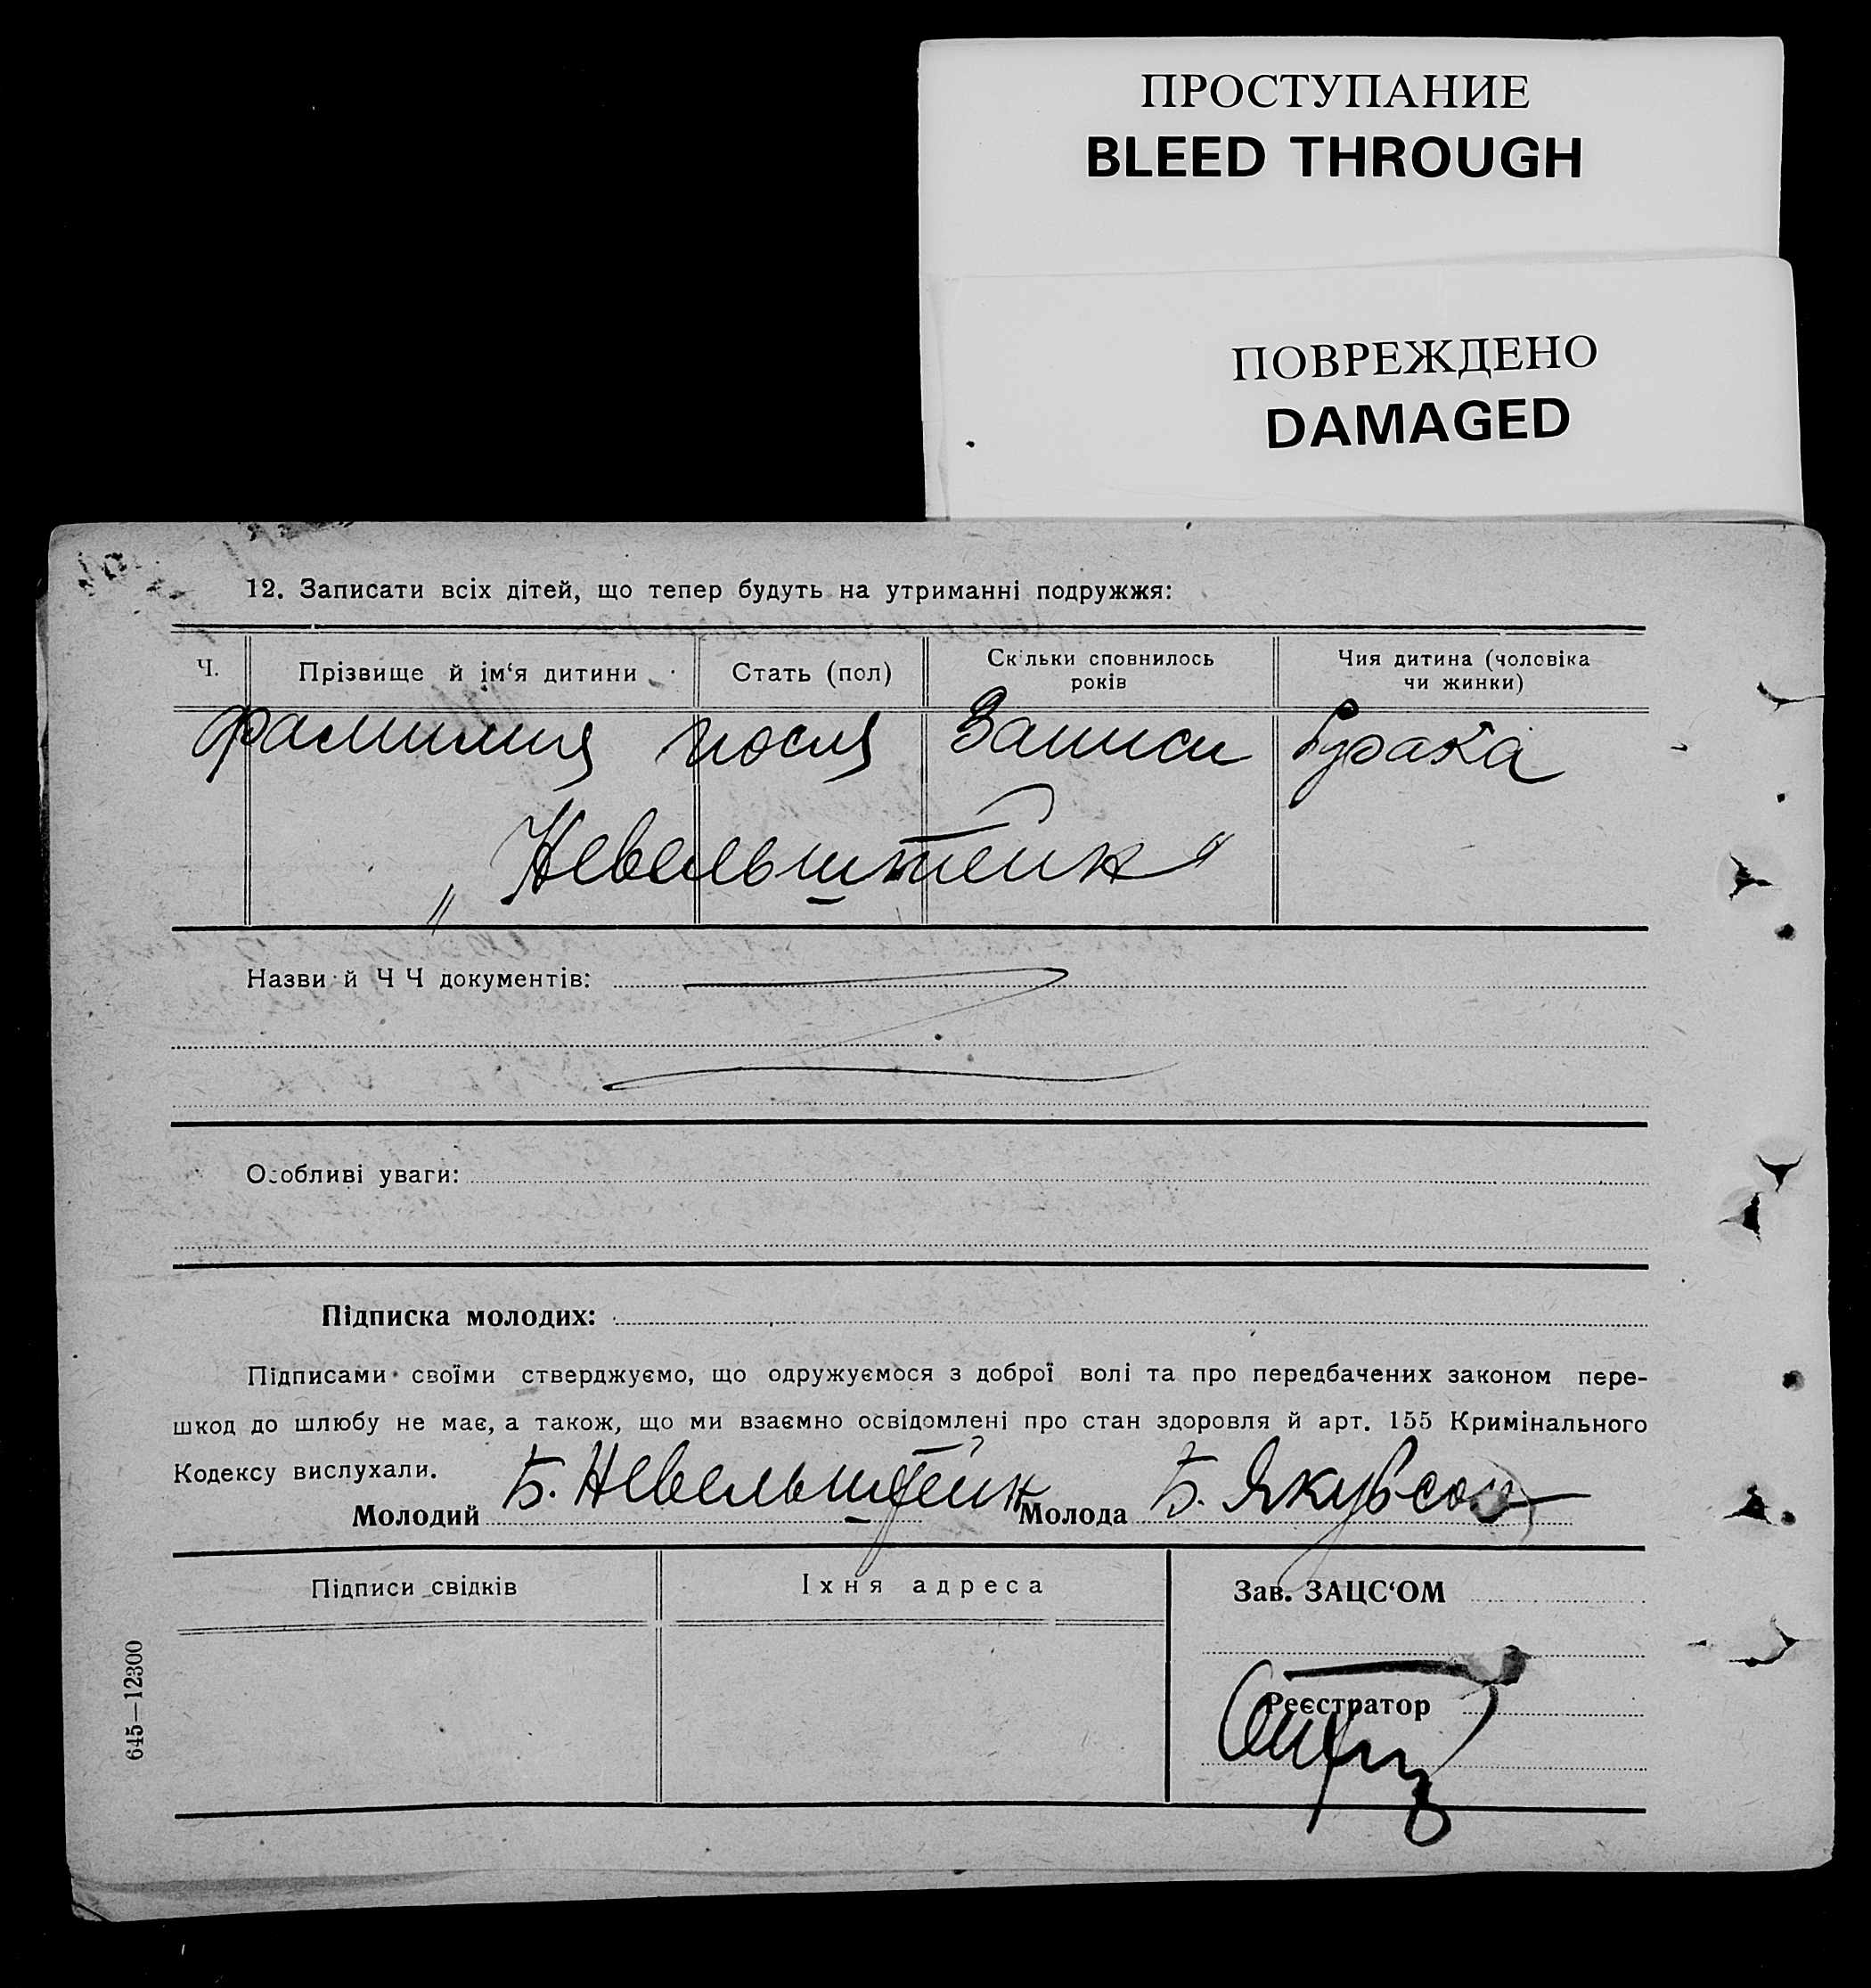 ПРОСТУПАНИЕ
BLEED THROUGH
ПОВРЕЖДЕНО
DAMAGED
12. Записати всіх дітей, що тепер будуть на утриманні подружжя:
Ч. Прізвище й ім‘я дитини Стать (пол) Скільки сповнилось років Чия дитина (чоловіка чи жинки)
фамилия после записи брака
„Невельштейн“
Назви й Ч Ч документів:
Особливі уваги:
Підписка молодих:
Підписами своїми стверджуємо, що одружуємося з доброї волі та про передбачених законом пере-
шкод до шлюбу не має, а також, що ми взаємно освідомлені про стан здоровля й арт. 155 Кримінального
Кодексу вислухали.
Молодий Б. Невельштейн Молода Б. Якубсон
Підписи свідків Їхня адреса Зав. ЗАЦС‘ОМ
Реєстратор
645—12300